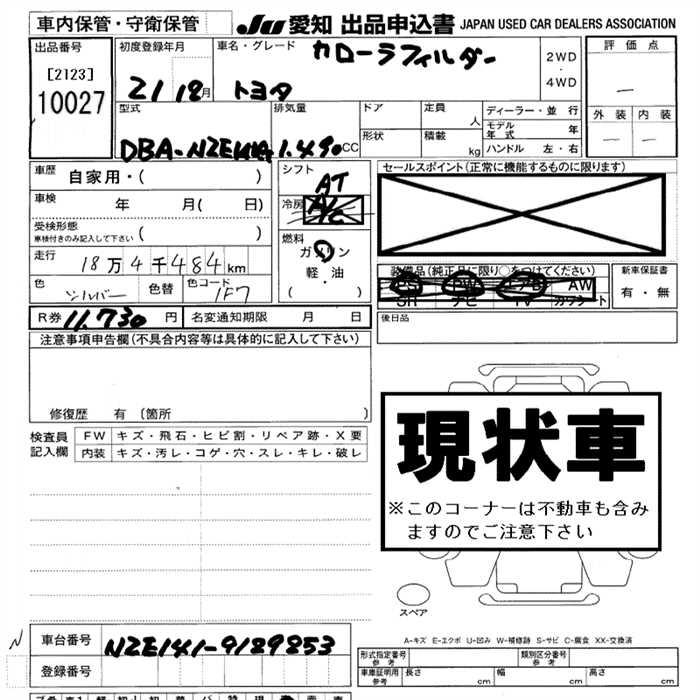 車内保管・守衛保管
JU 愛知 出品申込書 JAPAN USED CAR DEALERS ASSOCIATION
出品番号
[2123]
10027
初度登録年月
21 12月
車名・グレード
カローラフィルダー
トヨタ
2WD
・
4WD
評価点
—
外装 内装
— —
型式
DBA-NZE141G
排気量
1.490cc
ドア
定員
人
形状
積載
kg
ディーラー・並行
モデル年式 年
ハンドル 左・右
車歴 自家用・( )
車検 年 月( 日)
受検形態
車検付きのみ記入して下さい ( )
走行 18万4千484km
色 シルバー 色替 色コード 1F7
R券 11.730円 名変通知期限 月 日
シフト
AT
冷房 A/C
燃料
ガソリン
軽・油
( )
セールスポイント(正常に機能するものに限ります)
装備品(純正品に限り○をつけてください)
PS PW エアB AW
SR ナビ TV カワシート
新車保証書
有・無
後日品
注意事項申告欄(不具合内容等は具体的に記入して下さい)
修復歴 有〔箇所 〕
検査員記入欄
FW キズ・飛石・ヒビ割・リペア跡・X要
内装 キズ・汚レ・コゲ・穴・スレ・キレ・破レ
現状車
※このコーナーは不動車も含み
ますのでご注意下さい
スペア
A-キズ E-エクボ U-凹み W-補修跡 S-サビ C-腐食 XX-交換済
N
車台番号 NZE141-9129853
登録番号
形式指定番号
参考
類別区分番号
参考
車庫証明用
参考
長さ cm 幅 cm 高さ cm